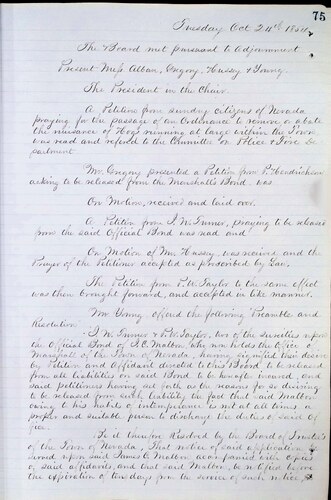 75
Tuesday Oct 24th
The Board met pursuant to Adjournment
Present Mess Alban, Gregory, Hussey & Young.
The President in the Chair
A Petition from sundry citizens of Nevada
praying for the passage of an Ordinance to remove or abate
the nuisance of Hogs running at large within the Town
was read and refered to the Committee on Police & Fire De
partment
Mr. Gregory presented a Petition from
asking to be released from the Marshalls Bond was
On Motion, received and laid over.
A Petition from J. W. Turner, praying to be released
from the said Official Bond was read and
On Motion of Mr. Hussey, was received and the
Prayer of the Petitioner accepted as prescribed by Law.
The Petition from Taylor to the same effect
was then brought forward, and accepted in like manner.
Mr Young offered the following Preamble and
Resolution
J. W. Turner & Taylor, two of the sureties upon
the Official Bond of J. C. Malbon, who now holds the Office of
Marshall of the Town of Nevada, having signified their desire
by Petition and Affidavit directed to this Board, to be released
from all liabilities on said Bond to be hereafter incured, and
said petitioners having set forth as the reasons for so desiring
to be released from such liability the fact that said Malbon
owing to his habits of intemperance is not at all times a
proper and suitable person to discharge the duties of said Of
fice.
Be it therefore Resolved by the Board of Trustees
of the Town of Nevada, That notice of said application be
served upon said James C. Malbon accompanied with copies
of said affidavits, and that said Malbon, be notified before
the expiration of ten days from the service of such notice, to